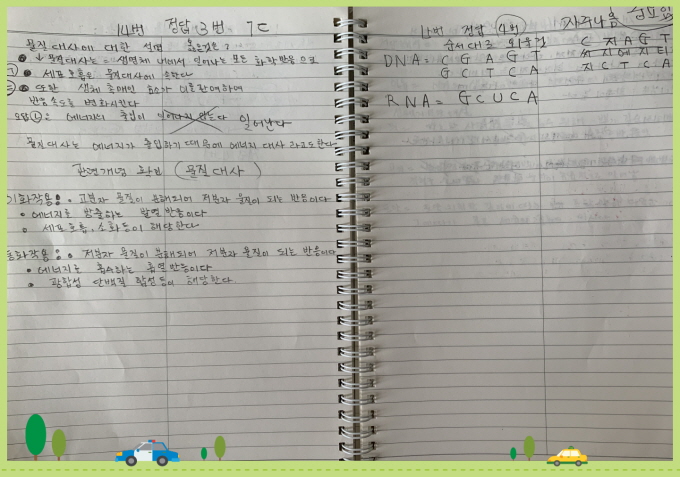 14번 정답 3번 7C
물질대사에 대한 설명 옳은것은?
물질대사는 생명체 내에서 일어나는 모든 화학반응으로
세포호흡은 물질대사에 속한다
또한 생체 촉매인 효소가 관여하여
반응속도를 변화시킨다
오답 ①은 에너지의 출입이 일어나지 않는다 일어난다
물질대사는 에너지가 출입하기 때문에 에너지 대사 라고도한다
관련개념 확보 (물질대사)
이화작용: 고분자 물질이 분해되어 저분자 물질이 되는 반응이다
에너지를 방출하는 발열반응이다
세포호흡, 소화등이 해당한다
동화작용: 저분자 물질이 분해되어 저분자 물질이 되는 반응이다
에너지를 흡수하는 흡열반응이다
광합성 단백질 합성등이 해당한다
정답 4번 자주나옴
순서대로 외우길
DNA = C G A G T
G C T C A
C 지 A G T
지 C T C A
RNA = G C U C A